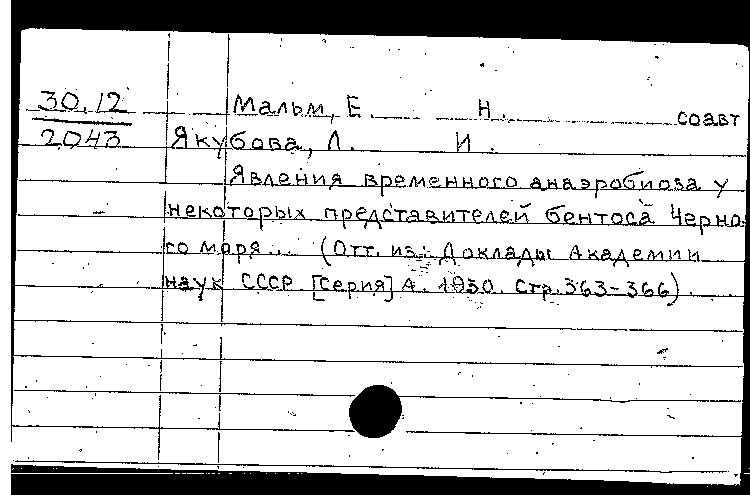 30.12 Мальм, Е. Н. соавт
2043 Якубова, Л. И.
Явления временного анаэробиоза у
некоторых представителей бентоса Черно-
го моря... (Отт. из: Доклады Академии
наук СССР. [Серия] А. 1930. Стр. 363-366).